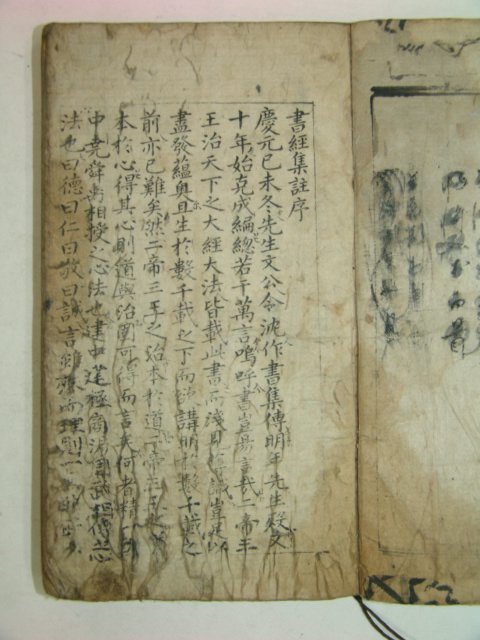 書經集註序
慶元已未冬先生文公令沈作書集傳明年先生歿又
十年始克成編總若干萬言嗚呼書豈易言哉二帝三
王治天下之大經大法皆載此書而淺見薄識豈足以
盡發蘊奧且生於數千載之下而欲講明於數千載之
前亦已難矣然二帝三王之治本於道二帝三王之道
本於心得其心則道與治固可得而言矣何者精一執
中堯舜禹相授之心法也建中建極商湯周武相傳之心
法也曰德曰仁曰敬曰誠言雖殊而理則一無非所以